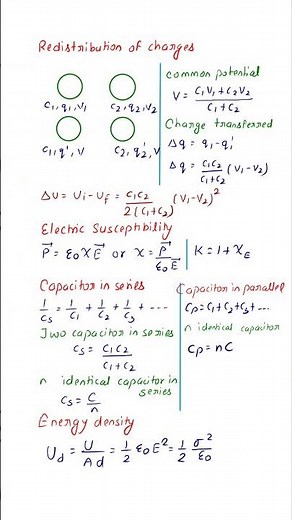 Redistribution of charges
C₁, q₁, V₁
C₂, q₂, V₂
C₁, q₁', V
C₂, q₂', V
common potential
V = (C₁V₁ + C₂V₂) / (C₁ + C₂)
Charge transferred
Δq = q₁ - q₁'
Δq = C₁C₂ / (C₁+C₂) (V₁ - V₂)
ΔU = Ui - Uf = C₁C₂ / 2(C₁+C₂) (V₁ - V₂)²
Electric Susceptibility
P⃗ = ε₀ χ E⃗ or χ = P⃗ / ε₀E⃗
K = 1 + χE
Capacitor in series
1/Cs = 1/C₁ + 1/C₂ + 1/C₃ + ---
Two capacitor in series
Cs = C₁C₂ / (C₁+C₂)
n identical capacitor in
series
Cs = C/n
Capacitor in parallel
Cp = C₁+C₂+C₃+...
n identical capacitor
Cp = nC
Energy density
Ud = U / Ad = 1/2 ε₀E² = 1/2 σ²/ε₀